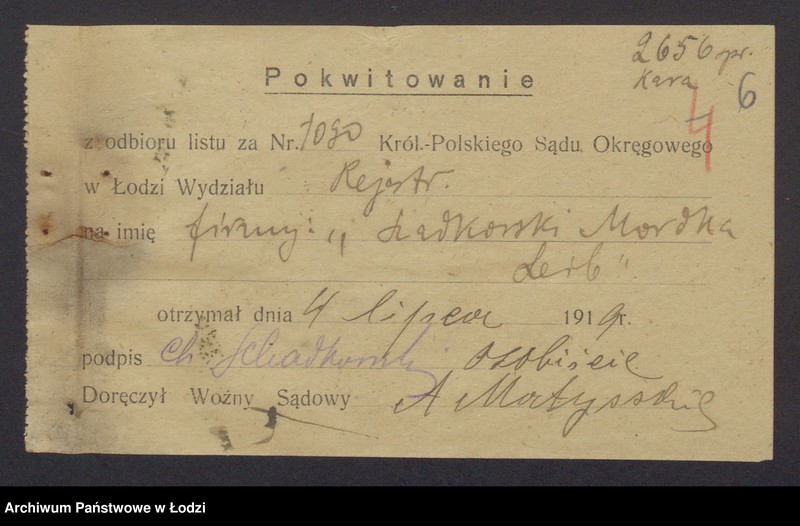 2656 rpr.
Kara
6
4
Pokwitowanie
z odbioru listu za Nr. 1090 Król.-Polskiego Sądu Okręgowego
w Łodzi Wydziału Rejestr.
na imię firmy: „Szadkowski Mordka
Leib"
otrzymał dnia 4 lipca 1919 r.
podpis Ch. Schadkowski osobiście
Doręczył Woźny Sądowy A Matyss
Archiwum Państwowe w Łodzi